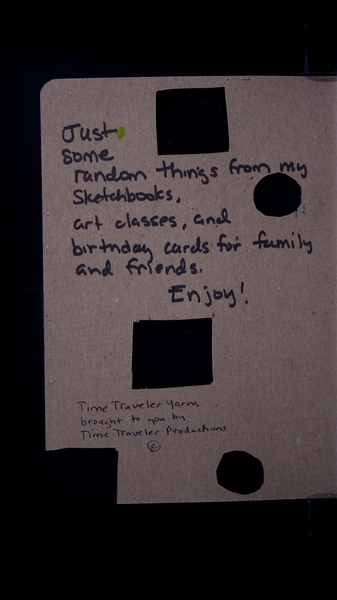 Just
some
random things from my
Sketchbooks,
art classes, and
birthday cards for family
and friends.
Enjoy!
Time Traveler Yarns
brought to you by
Time Traveler Productions
©